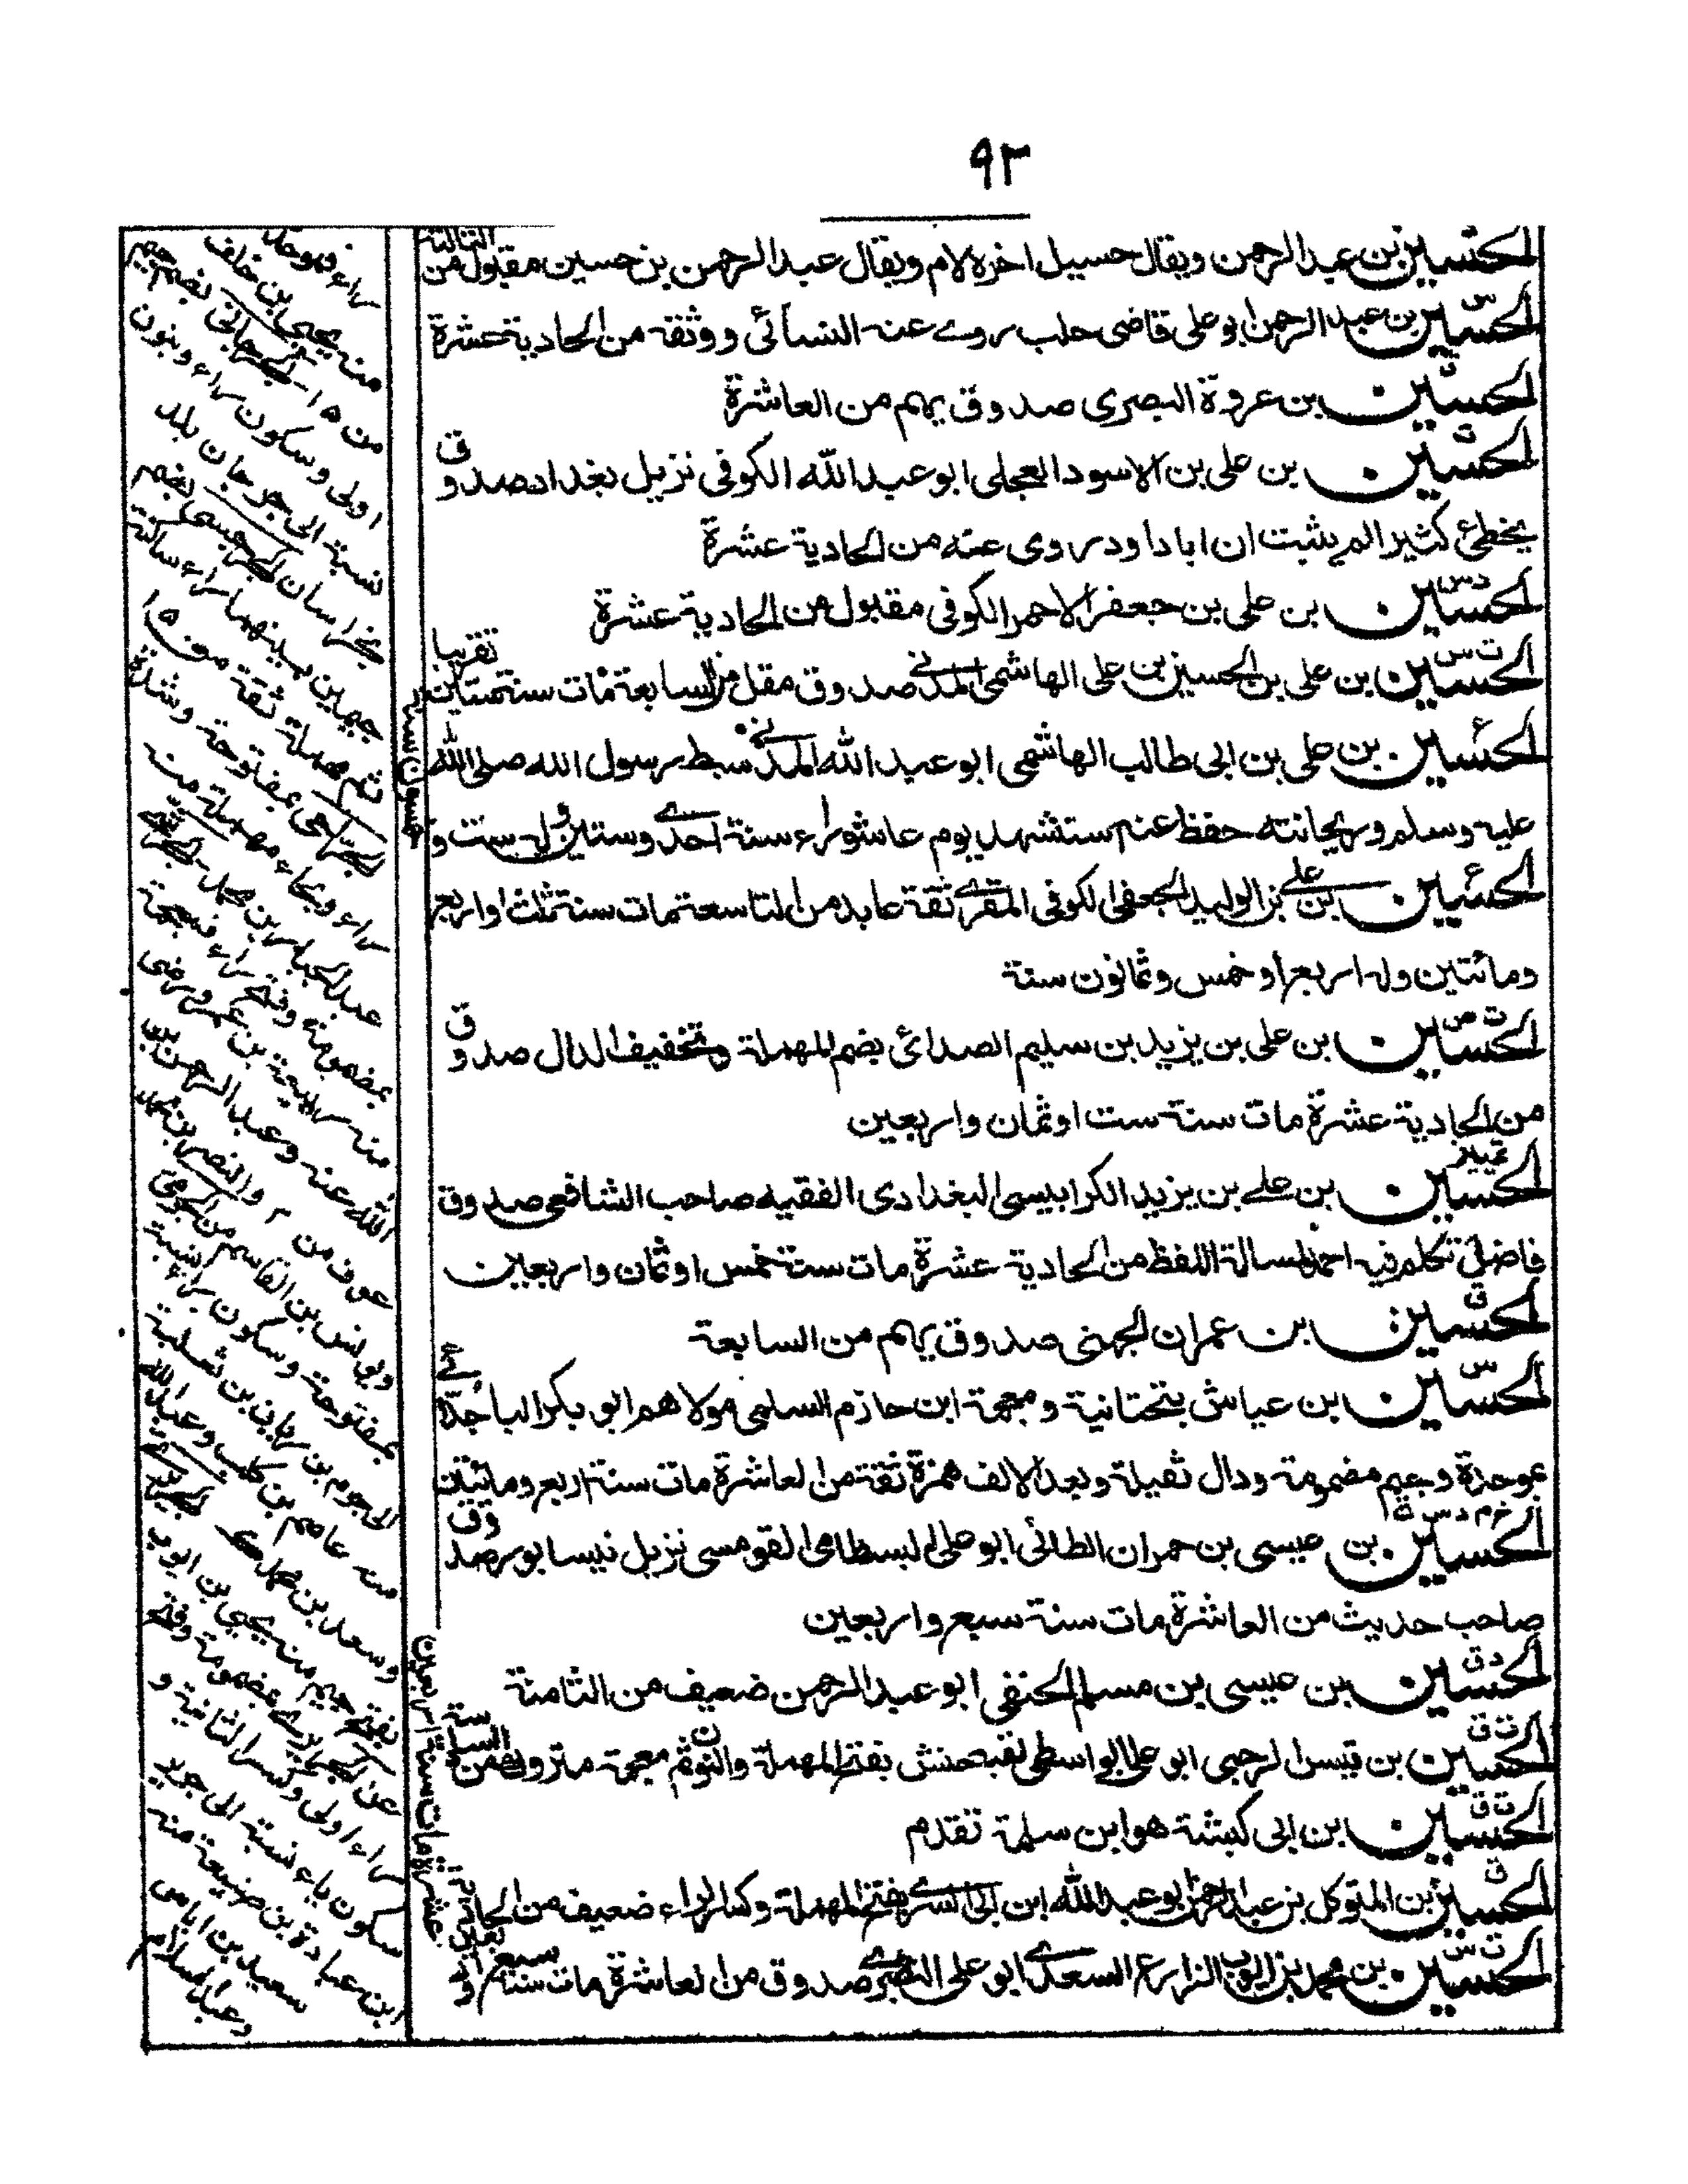 ٩٣
الحسين بن عبد الرحمن ويقال حسيل اخره لام ويقال عبد الرحمن بن حسين مقبول من الثالثة
س
الحسين بن عبد الرحمن ابو علي قاضى حلب روے عنه النسائى ووثقه من الحادية عشرة
ق
الحسين بن عروة البصرى صدوق يهم من العاشرة
ت
الحسين بن على بن الاسود العجلى ابو عبد الله الكوفى نزيل بغداد صدوق
يخطئ كثيرا لم يثبت ان ابا داود روى عنه من الحادية عشرة
دس
الحسين بن على بن جعفر الاحمر الكوفى مقبول من الحادية عشرة
ت س
الحسين بن على بن الحسين بن على الهاشمى المدنى صدوق مقل من السابعة مات سنة ستين تقريبا
ع
الحسين بن على بن ابى طالب الهاشمى ابو عبد الله المدنى سبط رسول الله صلى الله
عليه وسلم وريحانته حفظ عنه استشهد يوم عاشوراء سنة احدے وستين وله ست و
خمسون سنة
ع
الحسين بن على بن الوليد الجعفى الكوفى المقرے ثقة عابد من التاسعة مات سنة ثلث او اربع
ومائتين وله اربع او خمس وثمانون سنة
ت س
الحسين بن على بن يزيد بن سليم الصدائى بضم المهملة وتخفيف الدال صدوق
من الحادية عشرة مات سنة ست او ثمان واربعين
تمييز
الحسين بن علے بن يزيد الكرابيسى البغدادى الفقيه صاحب الشافعى صدوق
فاضل تكلم فيه احمد لمسالة اللفظ من الحادية عشرة مات سنة خمس او ثمان واربعين
ق
الحسين بن عمران الجهنى صدوق يهم من السابعة
س
الحسين بن عياش بتحتانية ومعجمة ابن حازم السلمى مولاهم ابو بكر الباجدائے
بموحدة وجيم مضمومة ودال ثقيلة وبعد الالف همزة ثقة من العاشرة مات سنة اربع ومائتين
خ م د س
الحسين بن عيسى بن حمران الطائى ابو على البسطامى القومسى نزيل نيسابور صدوق
صاحب حديث من العاشرة مات سنة سبع واربعين
دق
الحسين بن عيسى بن مسلم الحنفى ابو عبد الرحمن ضعيف من الثامنة
ت ق
الحسين بن قيس الرحبى ابو على الواسطى لقبه حنش بفتح المهملة والنون ثم معجمة متروك من السادسة
ت ق
الحسين بن ابى كبشة هو ابن سلمة تقدم
ق
الحسين بن المتوكل بن عبد الرحمن ابو عبد الله ابن ابى السرے بفتح المهملة وكسر الراء ضعيف من الحادية
عشرة مات سنة اربعين
ت س
الحسين بن محمد بن ايوب الذارع السعدے ابو على البصرے صدوق من العاشرة مات سنة سبع واربعين
راء فهو جد
منه يحيى بن خلف
من ١٥ الجرجانى بضم جيم
اولى وسكون راء وبنون
نسبة الى جرجان بلد
بخراسان الجرجسى بضم
جيمين بينهما راء ساكنة
ثم مهملة ثقة من ١٥
الجراحى بمفتوحة وشدة
راء وبحاء مهملة من
عبد الجبار بن محمد
بمضمومة وفتح راء فمعجمة
عنه
الله عنه وعبد الرحمن بن
عوف من ٢ والنضر بن محمد
ويونس بن القاسم من الجرمى
بمفتوحة وسكون راء نسبة
الى جرم بن ربان بن ثعلبة
منه عاصم بن كليب وعبد الله
وسعد بن محمد
بفتح جيم منه يحيى بن ايوب
بمضمومة وفتح
راء اولى وكسر الثانية و
سكون ياء نسبة الى جرير
ابن عبادة بن ضبيعة منه
سعيد بن اياس
وعبد السلام